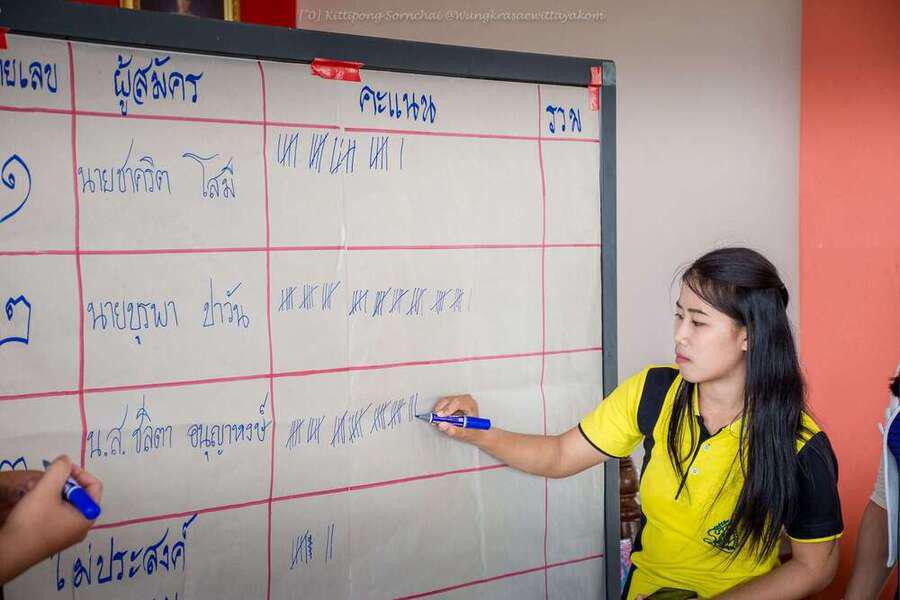 ["0] Kittipong Sornchai @Wungkrasaewittayakom
ายเลข ผู้สมัคร คะแนน รวม
๑ นายชาคริต โสมี
๒ นายบุรุพา ปาวัน
๓ น.ส. ชลิตา อนุญาหงษ์
ไม่ประสงค์